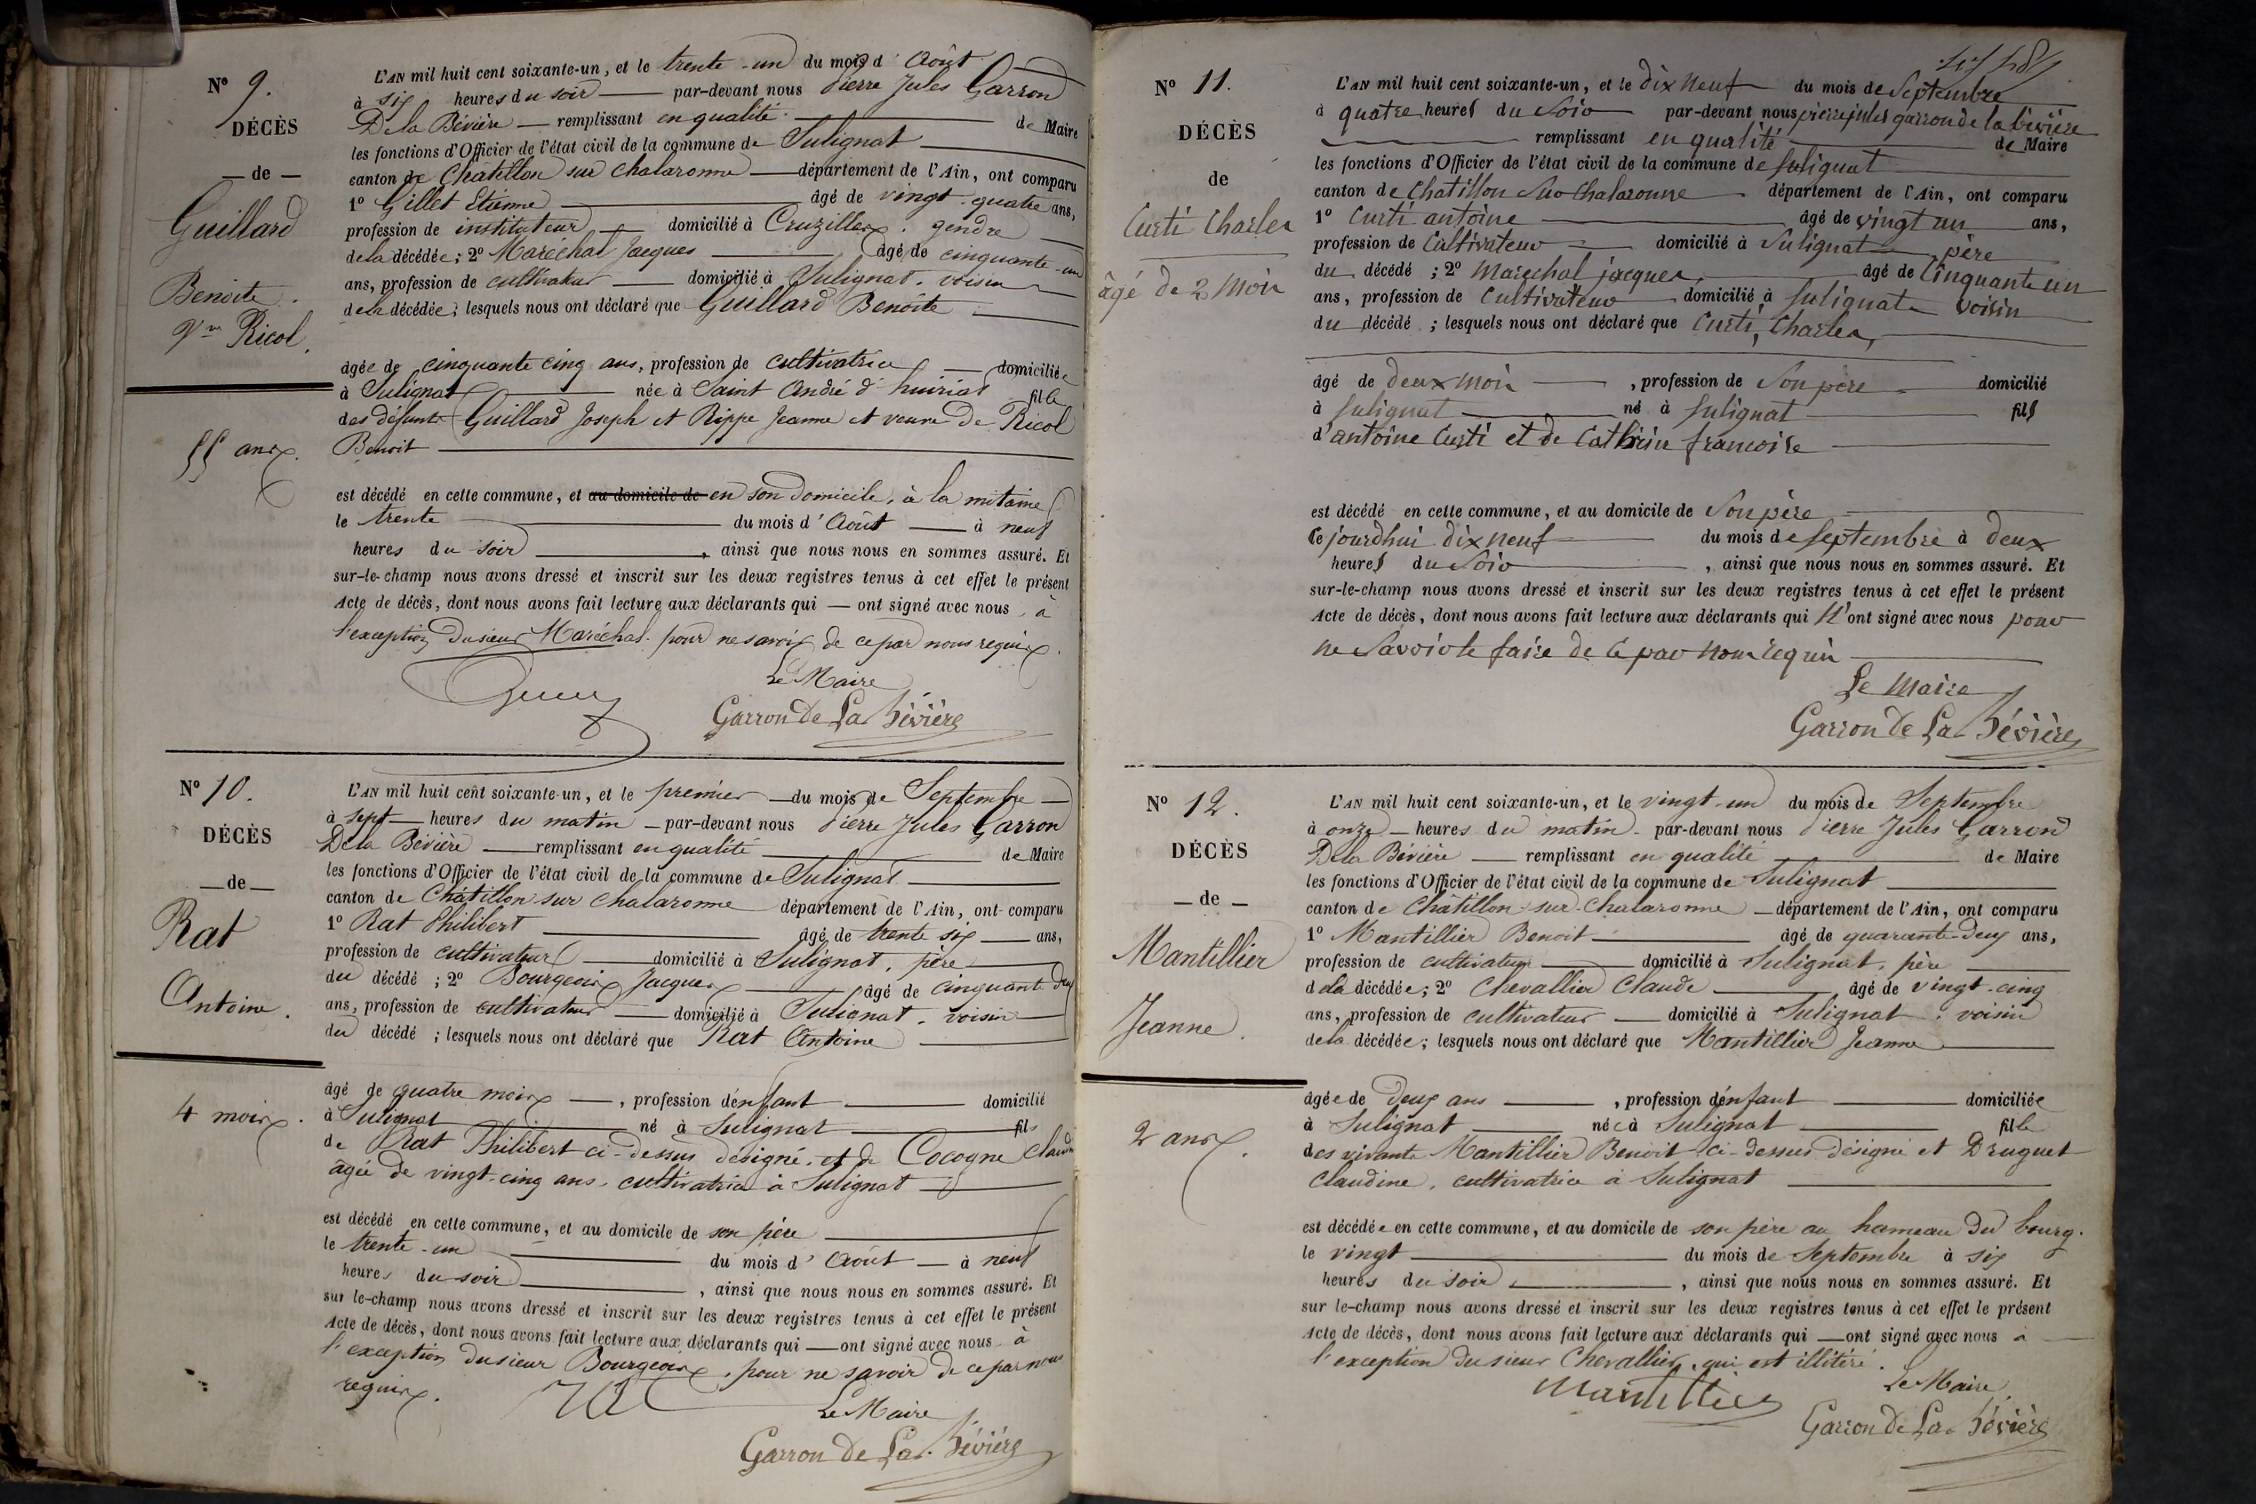 Nº 9.
DÉCÈS
— de —
Guillard
Benoite.
Vve Ricol.
55 ans.
L'AN mil huit cent soixante-un, et le trente-un du mois d'Août
à six heures du soir — par-devant nous Pierre Jules Garron
De la Bévière — remplissant en qualité — de Maire
les fonctions d'Officier de l'état civil de la commune de Sulignat
canton de Châtillon sur Chalaronne — département de l'Ain, ont comparu
1º Gillet Etienne — âgé de vingt-quatre ans,
profession de instituteur — domicilié à Cruzilles. gendre
de la décédée; 2º Maréchal Jacques — âgé de cinquante-un
ans, profession de cultivateur — domicilié à Sulignat. voisin
de la décédée; lesquels nous ont déclaré que Guillard Benoîte
âgée de cinquante cinq ans, profession de cultivatrice — domiciliée
à Sulignat — née à Saint André d'huiriat fille
des défunts Guillard Joseph et Rippe Jeanne et veuve de Ricol
Benoit —
est décédé en cette commune, et au domicile de en son Domicile, à la mitaine
le trente — du mois d'Août — à neuf
heures du soir —, ainsi que nous nous en sommes assuré. Et
sur-le-champ nous avons dressé et inscrit sur les deux registres tenus à cet effet le présent
Acte de décès, dont nous avons fait lecture aux déclarants qui — ont signé avec nous à
l'exception du sieur Maréchal. pour ne savoir de ce par nous requis.
Le Maire
Garron De La Bévière
Nº 10.
DÉCÈS
— de —
Rat
Antoine.
4 mois.
L'AN mil huit cent soixante-un, et le premier — du mois de Septembre —
à sept — heures du matin — par-devant nous Pierre Jules Garron
De la Bévière — remplissant en qualité — de Maire
les fonctions d'Officier de l'état civil de la commune de Sulignat —
canton de Châtillon sur Chalaronne département de l'Ain, ont comparu
1º Rat Philibert — âgé de trente six — ans,
profession de cultivateur — domicilié à Sulignat, père —
du décédé; 2º Bourgeois Jacques — âgé de cinquante deux
ans, profession de cultivateur — domicilié à Sulignat. voisin —
du décédé; lesquels nous ont déclaré que Rat Antoine —
âgé de quatre mois —, profession d'enfant — domicilié
à Sulignat — né à Sulignat — fils
de Rat Philibert ci-dessus désigné, et de Cocogne Claudine
âgée de vingt-cinq ans, cultivatrice à Sulignat —
est décédé en cette commune, et au domicile de son père —
le trente-un — du mois d'Août — à neuf
heures du soir —, ainsi que nous nous en sommes assuré. Et
sur le-champ nous avons dressé et inscrit sur les deux registres tenus à cet effet le présent
Acte de décès, dont nous avons fait lecture aux déclarants qui — ont signé avec nous à
l'exception du sieur Bourgeois, pour ne savoir de ce par nous
requis.
Le Maire
Garron De La Bévière
Nº 11.
DÉCÈS
de
Curti Charles
âgé de 2 mois
L'AN mil huit cent soixante-un, et le dix neuf du mois de Septembre
à quatre heures du Soir par-devant nous pierre jules garron de la bévière
— remplissant en qualité — de Maire
les fonctions d'Officier de l'état civil de la commune de Sulignat
canton de Chatillon Sur Chalaronne département de l'Ain, ont comparu
1º Curti antoine — âgé de vingt un ans,
profession de Cultivateur — domicilié à Sulignat — père
du décédé; 2º marechal jacques, — âgé de Cinquante un
ans, profession de Cultivateur — domicilié à Sulignat — voisin
du décédé; lesquels nous ont déclaré que Curti, Charles, —
âgé de deux mois —, profession de Son père — domicilié
à Sulignat — né à Sulignat — fils
d'antoine Curti et de Catherin francoise —
est décédé en cette commune, et au domicile de Son père —
Ce jourdhui dix neuf — du mois de Septembre à deux
heures du Soir —, ainsi que nous nous en sommes assuré. Et
sur-le-champ nous avons dressé et inscrit sur les deux registres tenus à cet effet le présent
Acte de décès, dont nous avons fait lecture aux déclarants qui n'ont signé avec nous pour
ne Savoir le faire de Ce par nous requis —
Le Maire
Garron De La Bévière
Nº 12.
DÉCÈS
— de —
Mantillier
Jeanne.
2 ans.
L'AN mil huit cent soixante-un, et le vingt-un du mois de Septembre
à onze — heures du matin — par-devant nous Pierre Jules Garron
De la Bévière — remplissant en qualité — de Maire
les fonctions d'Officier de l'état civil de la commune de Sulignat —
canton de Châtillon-sur-Chalaronne — département de l'Ain, ont comparu
1º Mantillier Benoit — âgé de quarante-deux ans,
profession de cultivateur — domicilié à Sulignat, père —
de la décédée; 2º Chevallier Claude — âgé de vingt-cinq
ans, profession de cultivateur — domicilié à Sulignat. voisin
de la décédée; lesquels nous ont déclaré que Mantillier Jeanne —
âgée de Deux ans —, profession d'enfant — domiciliée
à Sulignat — née à Sulignat — fille
des vivants Mantillier Benoit ci-dessus désigné et Druguet
Claudine, cultivatrice à Sulignat —
est décédée en cette commune, et au domicile de son père au hameau du bourg.
le vingt — du mois de Septembre à six
heures du soir, —, ainsi que nous nous en sommes assuré. Et
sur le-champ nous avons dressé et inscrit sur les deux registres tenus à cet effet le présent
Acte de décès, dont nous avons fait lecture aux déclarants qui — ont signé avec nous à —
l'exception du sieur Chevallier, qui est illitéré.
Mantillier
Le Maire,
Garron De La Bévière